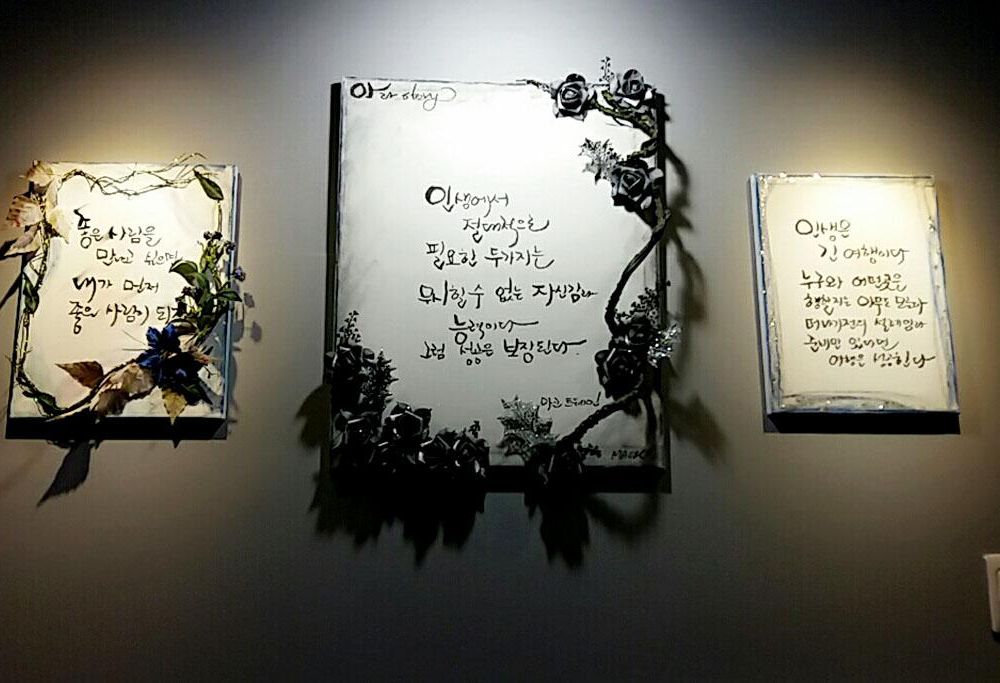 좋은 사람을
만나고 싶으면
내가 먼저
좋은 사람이 되자
아라 story
인생에서
절대적으로
필요한 두가지는
무시할수 없는 자신감과
능력이다
그럼 성공은 보장된다.
마크 트웨인
인생은
긴 여행이다
누구와 어떤곳을
행할지는 아무도 모른다
떠나기전의 설레임과
준비만 있다면
여행은 성공한다